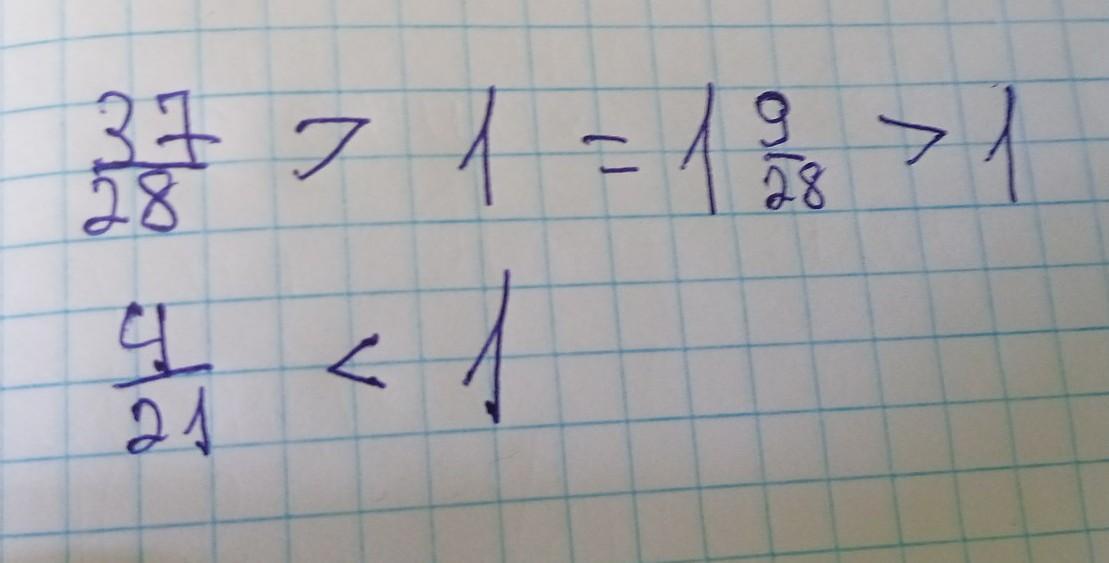 37/28 > 1 = 1 9/28 > 1
4/21 < 1